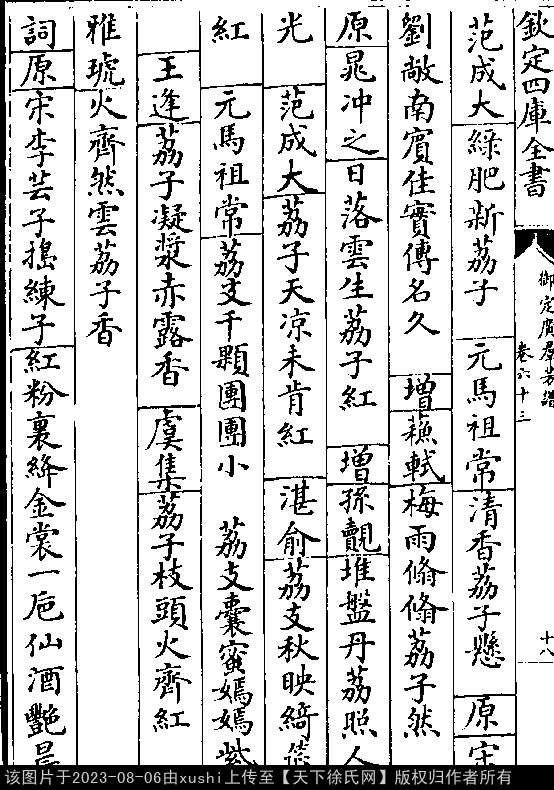 欽定四庫全書
御定廣群芳譜
卷六十三
十八
范成大綠肥新荔子 元馬祖常清香荔子懸 原宋
劉敞南賓佳實傳名久 增蘇軾梅雨翛翛荔子然
原晁冲之日落雲生荔子紅 增孫覿堆盤丹荔照人
光 范成大荔子天凉未肯紅 湛俞荔支秋映綺筵
紅 元馬祖常荔支千顆團團小 荔支囊蜜嫣嫣紫
王逢荔子凝漿赤露香 虞集荔子枝頭火齊紅
雅琥火齊然雲荔子香
詞原宋李芸子搗練子紅粉裏絳金裳一巵仙酒艷晨
该图片于2023-08-06由xushi上传至【天下徐氏网】版权归作者所有